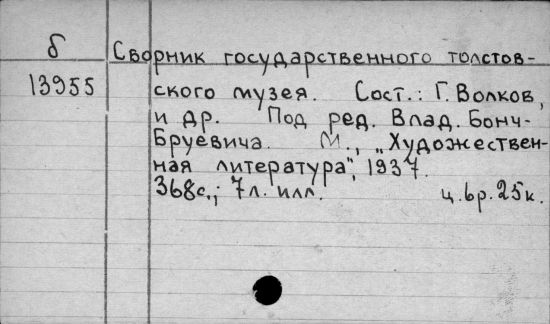 б
13955
Сборник государственного толстов-
ского музея. Сост.: Г. Волков,
и др. Под ред. Влад. Бонч-
Бруевича. М., „Художествен-
ная литература", 1937.
368с.; 7л. илл. ц. 6р. 25к.